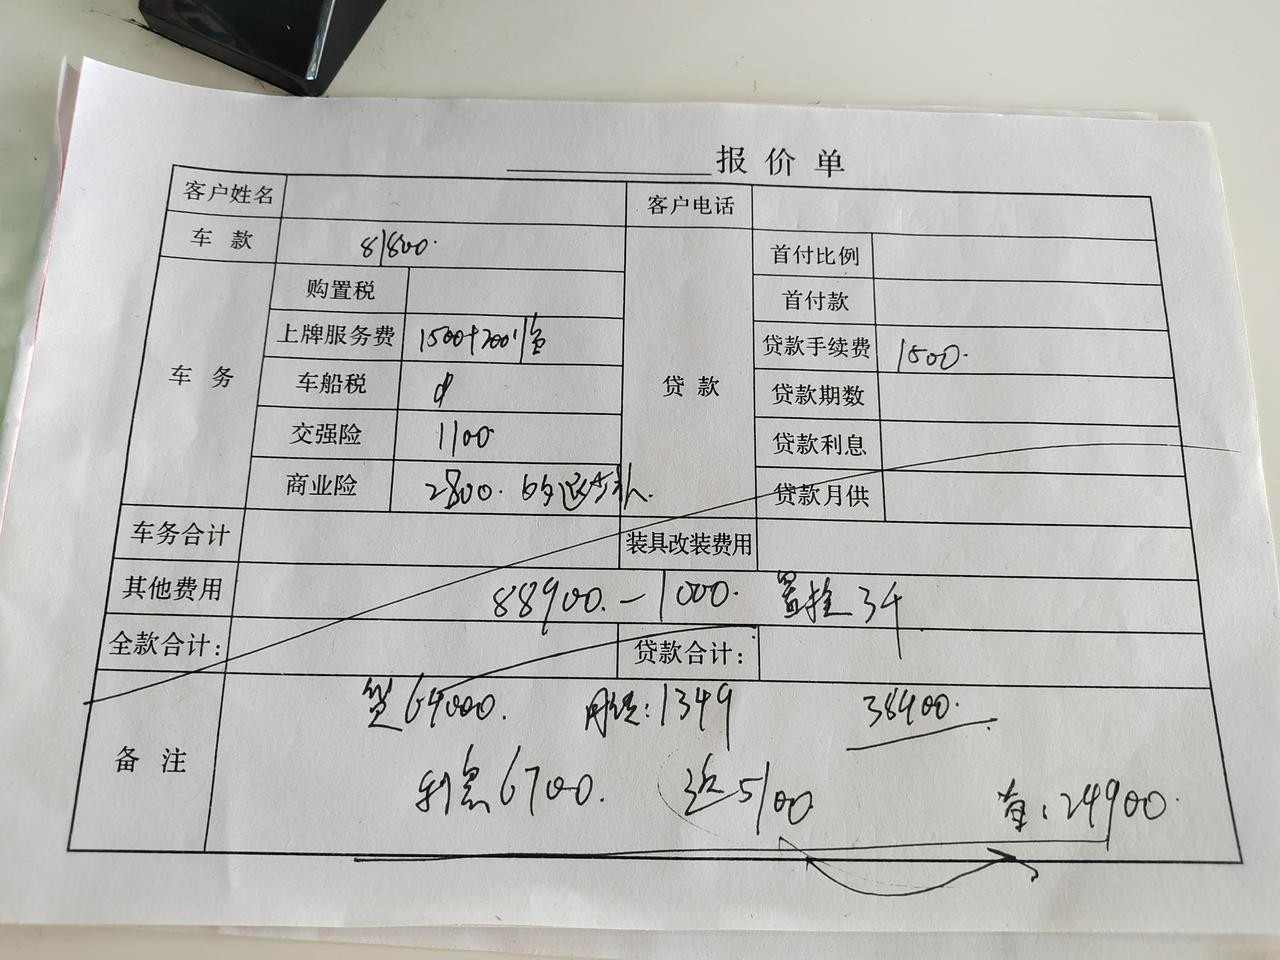 报价单
客户姓名 客户电话
车款 81800.
车务 贷款
购置税 首付比例
首付款
上牌服务费 1500+200 贷款手续费 1500.
车船税 贷款期数
交强险 1100 贷款利息
商业险 2800. 贷款月供
车务合计 装具改装费用
其他费用 88900.-1000. 置换34
全款合计: 贷款合计:
备注
贷64000. 月供:1349 38900.
利息6700. 返5100 首:24900.